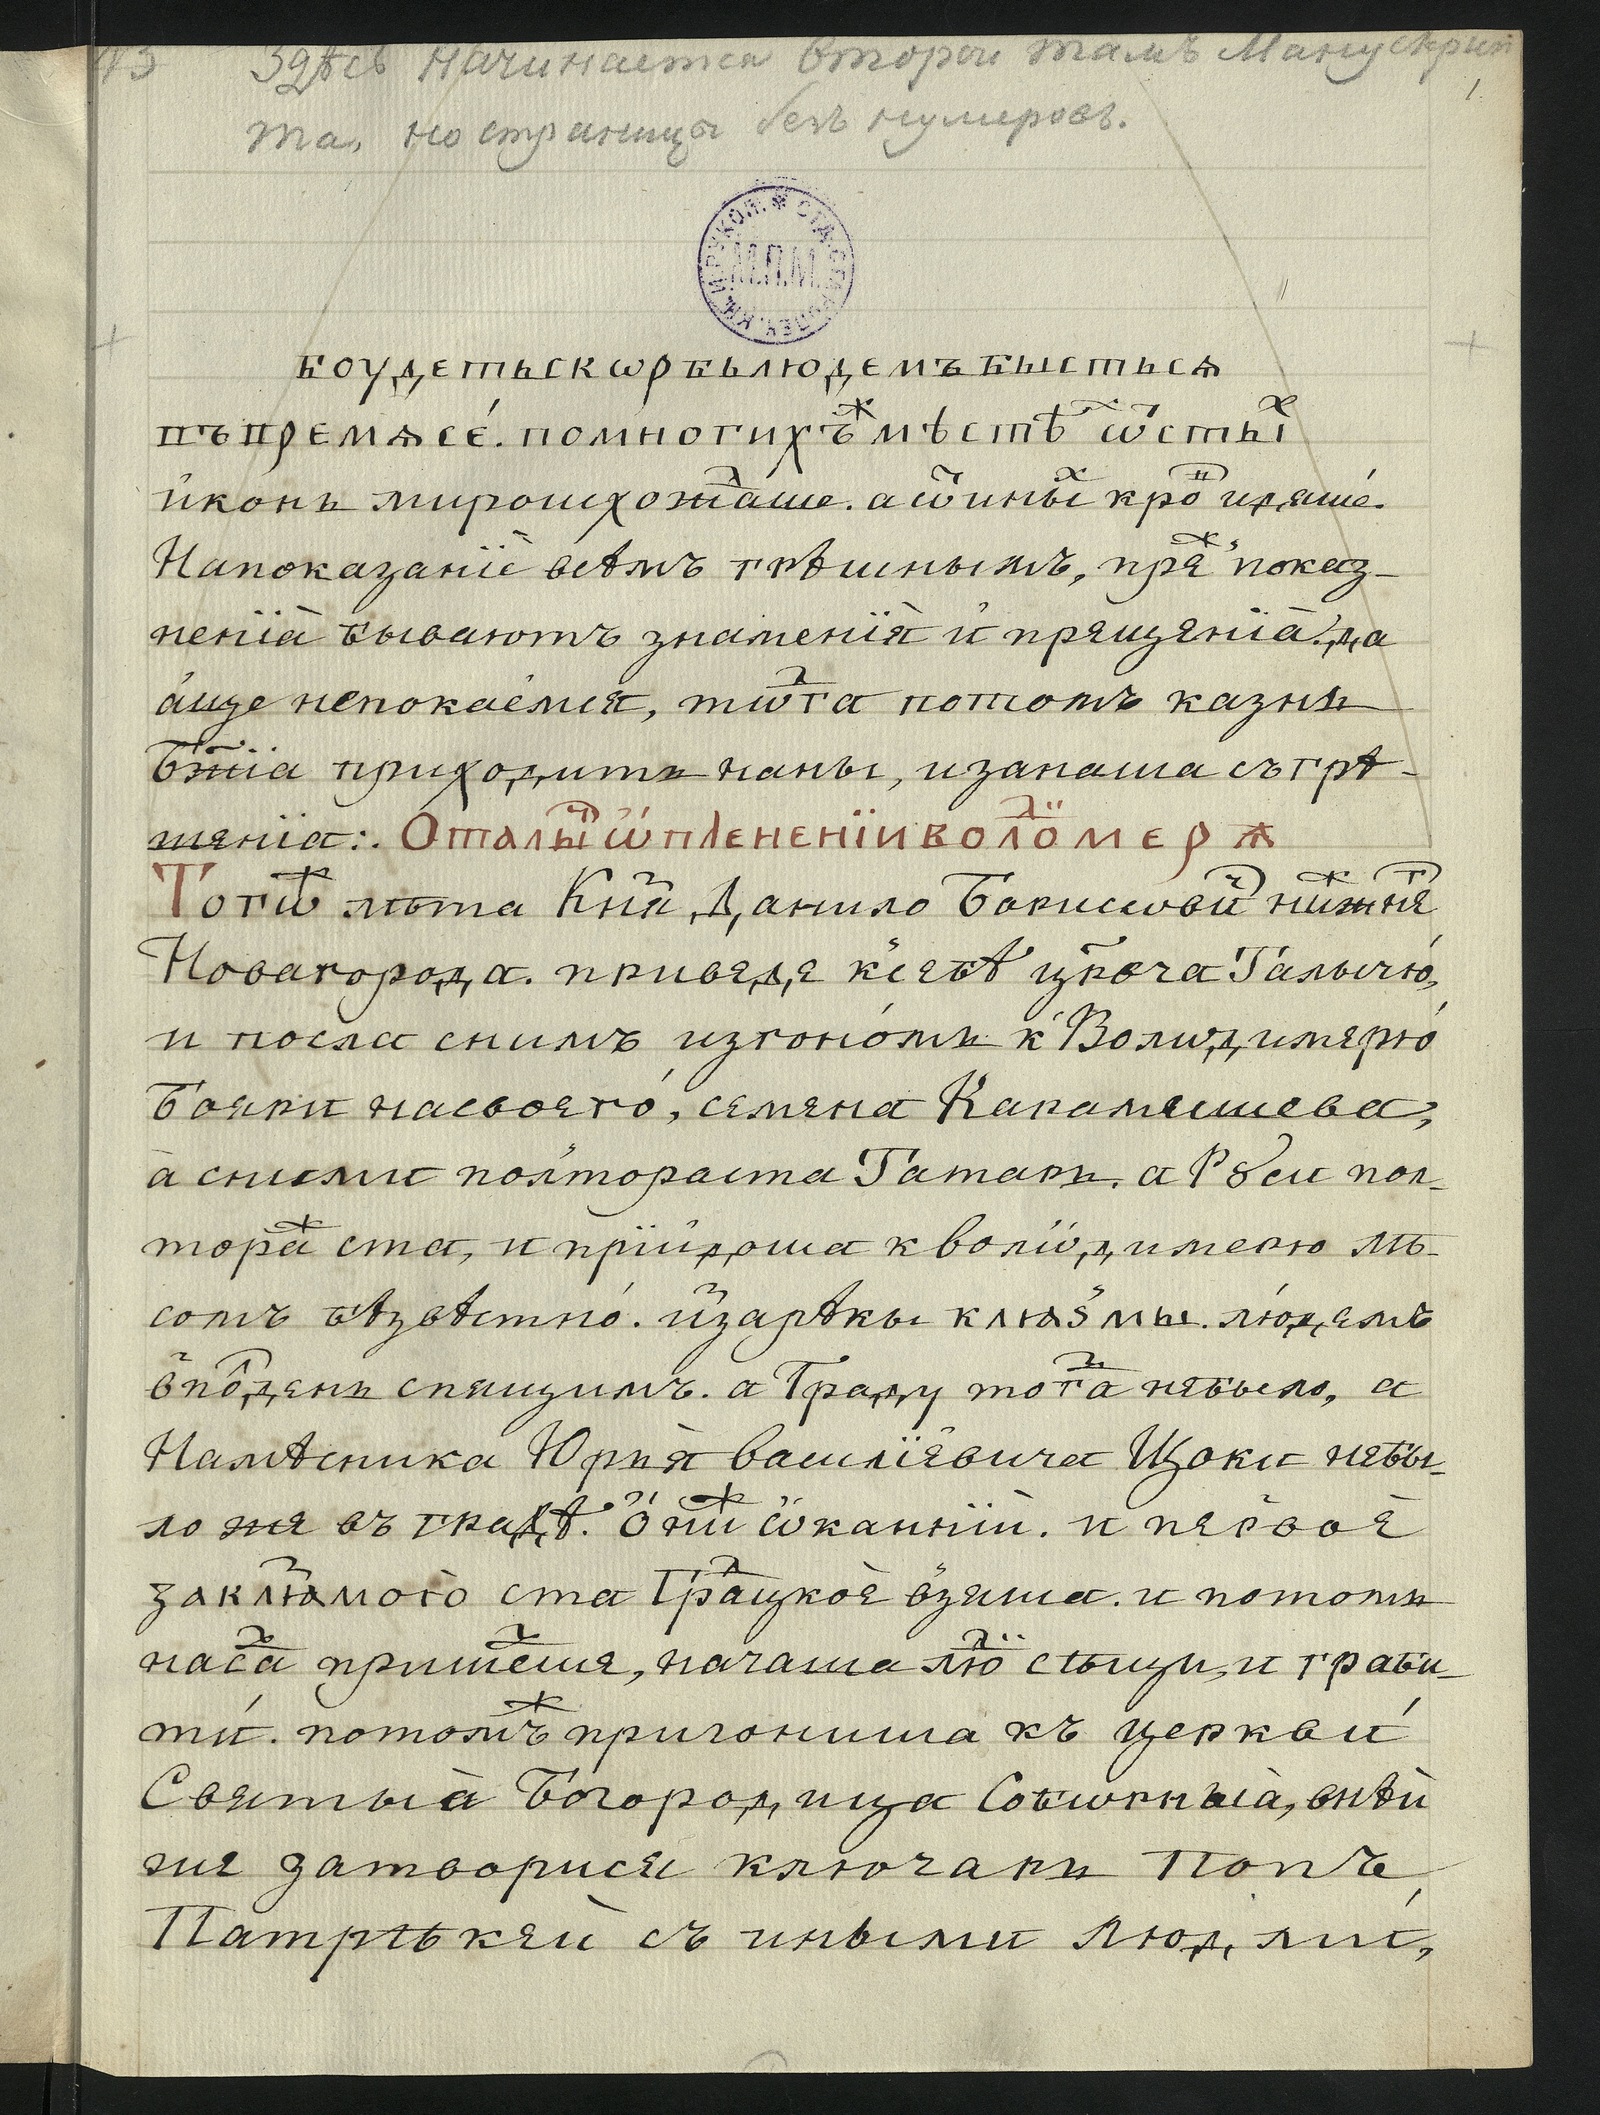 N3 Здѣсь начинается второй томъ Манускрип
та, но страницы безъ нумеровъ.
1.
М.П.М.
боудетьскѡрбьлюдемъбыстьсѧ
пъпремѧсе́. помногихъ ж мѣстѣ х ѿсты́ х
и҆конъ мироихожаше. аѿины х кро в идяше́.
Напоказанїѐ всѣмъ грѣшнымъ, пре ж показ-
ненїа̀ бываютъ знаменїя̀ и прещенїа̀. да
а́ще непокаемся, тѡг д а потомъ казнь
бж҃їа приходитъ наны, изанаша съгрѣ-
шенїа:. Оталы ч ѿпленении воло ди мерѧ
Тогѡ ж лѣта Кня з Данило Борисѡви ч ниж ж не г
Новагорода. приведе к'себѣ цр҃вича Талычю́,
и посла снимъ изгоно́мъ к' Волѡдимерю́
Боярина своего́, семена Карамышева,
а̀ снимъ полтораста Татаръ. а Рꙋси пол-
тора ж ста, и прїидоша к волѡдимерю лѣ-
сомъ безвѣстно́. и҆ззарѣкы клюазмы. людемъ
впо л день спящимъ. а Граду тог д а небыло, а
Намѣсника Юрья̀ василїевича Щоки небы-
ло же въ градѣ. о҆ни ж ѡканнїи. и первоѐ
заклюамого̀ ста Гра д цкоѐ взяша. и потомъ
наса м пришедше, начаша лю ди сѣщи, и граби-
ти́. потомъ ж пригониша къ церкви́
Святыа̀ Богородица Собѡрныа̀, внѣй
же затворися ключарь Попъ
Патрѣкей съ иными людми́,